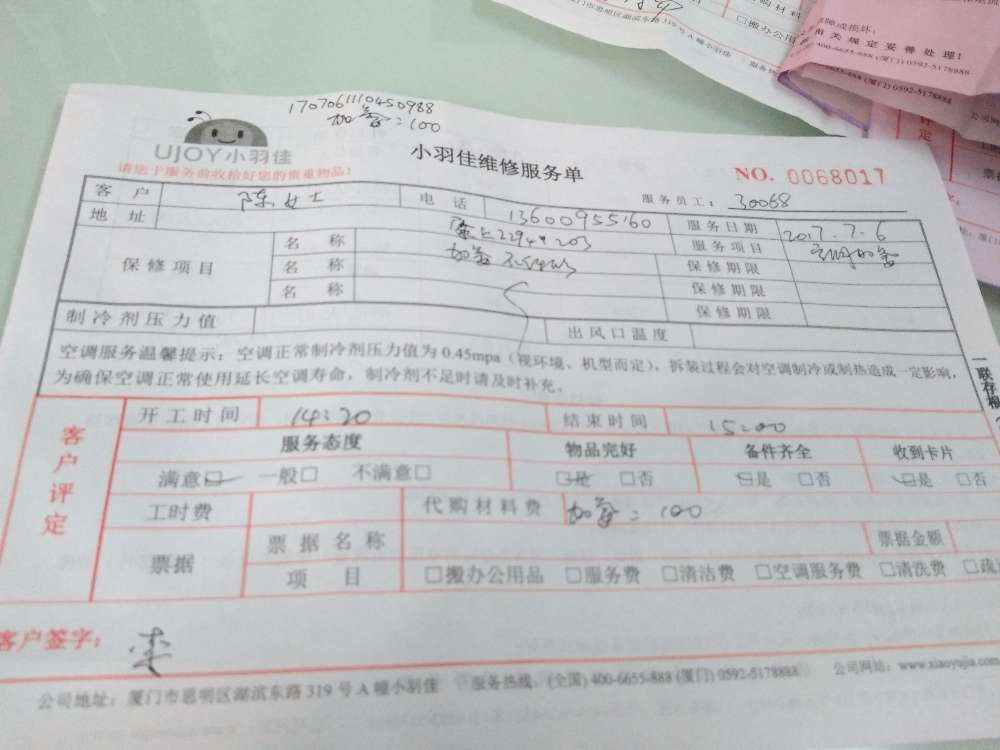 搬办公用
厦门市思明区湖滨东路319号A幢小羽佳
故障或损坏,
有关规定妥善处理!
400-6655-888(厦门)0592-5178888
1707061110450988
加氨=100
UJOY小羽佳
小羽佳维修服务单
NO. 0068017
请您于服务前收拾好您的贵重物品!
服务员工: 30068
客户 陈女士 电话 13600955160 服务日期 2017.7.6
地址 服务项目
保修项目 名称 保修期限
名称 保修期限
名称 保修期限
制冷剂压力值 出风口温度
空调服务温馨提示: 空调正常制冷剂压力值为0.45mpa(视环境、机型而定), 拆装过程会对空调制冷或制热造成一定影响,
为确保空调正常使用延长空调寿命, 制冷剂不足时请及时补充。
一联存根
客户评定
开工时间 14:20 结束时间 15:00
服务态度 物品完好 备件齐全 收到卡片
满意☑ 一般□ 不满意□ ☑是 □否 ☑是 □否 ☑是 □否
工时费 代购材料费 加氨=100
票据 票据名称 票据金额
项目 □搬办公用品 □服务费 □清洁费 □空调服务费 □清洗费 □疏
客户签字:
公司地址: 厦门市思明区湖滨东路319号A幢小羽佳 服务热线: (全国)400-6655-888(厦门)0592-5178888 公司网站: www.xiaoyujia.com